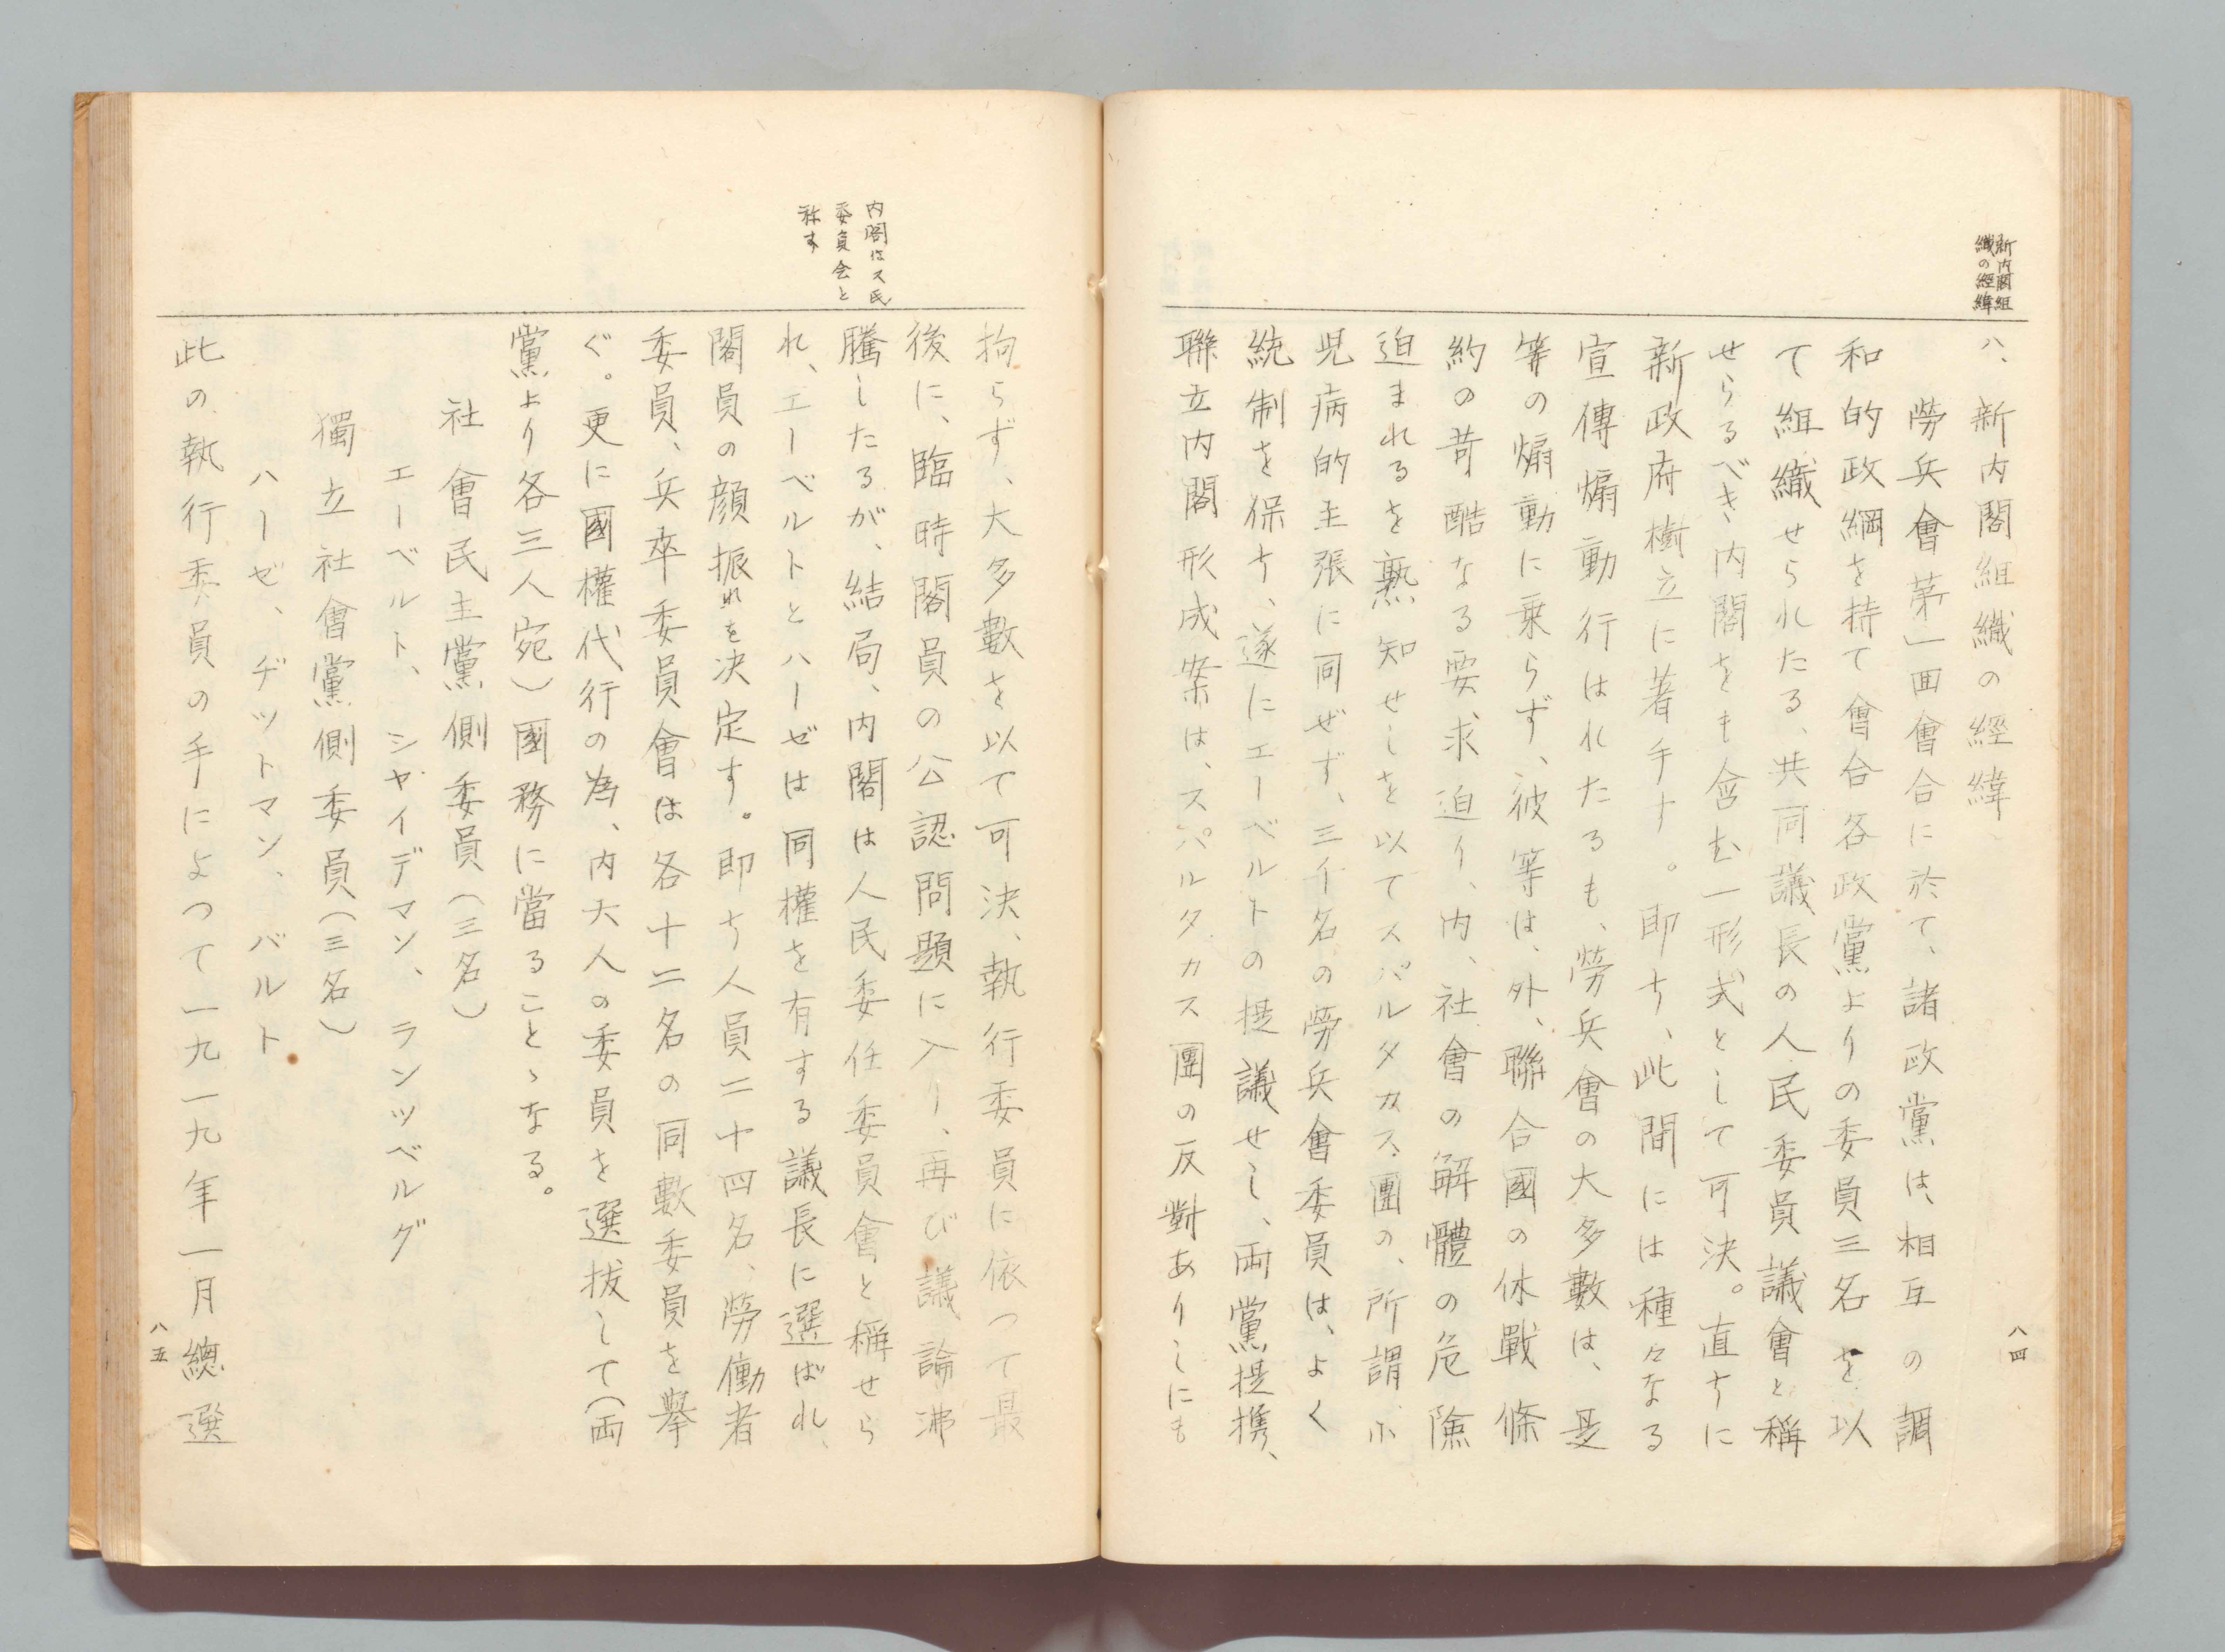 新内閣組
織の經緯
八、新内閣組織の經緯
勞兵會第一囬會合に於て、諸政黨は、相互の調
和的政綱を持て會合各政黨よりの委員三名を以
て組織せられたる、共同議長の人民委員議會と稱
せらるべき内閣をも含む一形式として可決。直ちに
新政府樹立に著手す。即ち、此間には種々なる
宣傳煽動行はれたるも、勞兵會の大多數は、是
等の煽動に乗らず、彼等は、外、聯合國の休戰條
約の苛酷なる要求迫り、内、社會の解體の危險
迫まれるを熟知せしを以てスパルタカス團の、所謂小
児病的主張に同ぜず、三千名の勞兵會委員は、よく
統制を保ち、遂にエーベルトの提議せし、両黨提携、
聯立内閣形成案は、スパルタカス團の反對ありしにも
八四
内閣は人民
委員会と
称す
拘らず、大多數を以て可決、執行委員に依つて最
後に、臨時閣員の公認問題に入り、再び議論沸
騰したるが、結局、内閣は人民委任委員會と稱せら
れ、エーベルトとハーゼは同權を有する議長に選ばれ、
閣員の顔振れを決定す。即ち人員二十四名、勞働者
委員、兵卒委員會は各十二名の同數委員を擧
ぐ。更に國權代行の為、内六人の委員を選拔して（両
黨より各三人宛）國務に當ることゝなる。
社會民主黨側委員（三名）
エーベルト、シャイデマン、ランツベルグ
獨立社會黨側委員（三名）
ハーゼ、ヂットマン、バルト
此の執行委員の手によつて一九一九年一月總選
八五